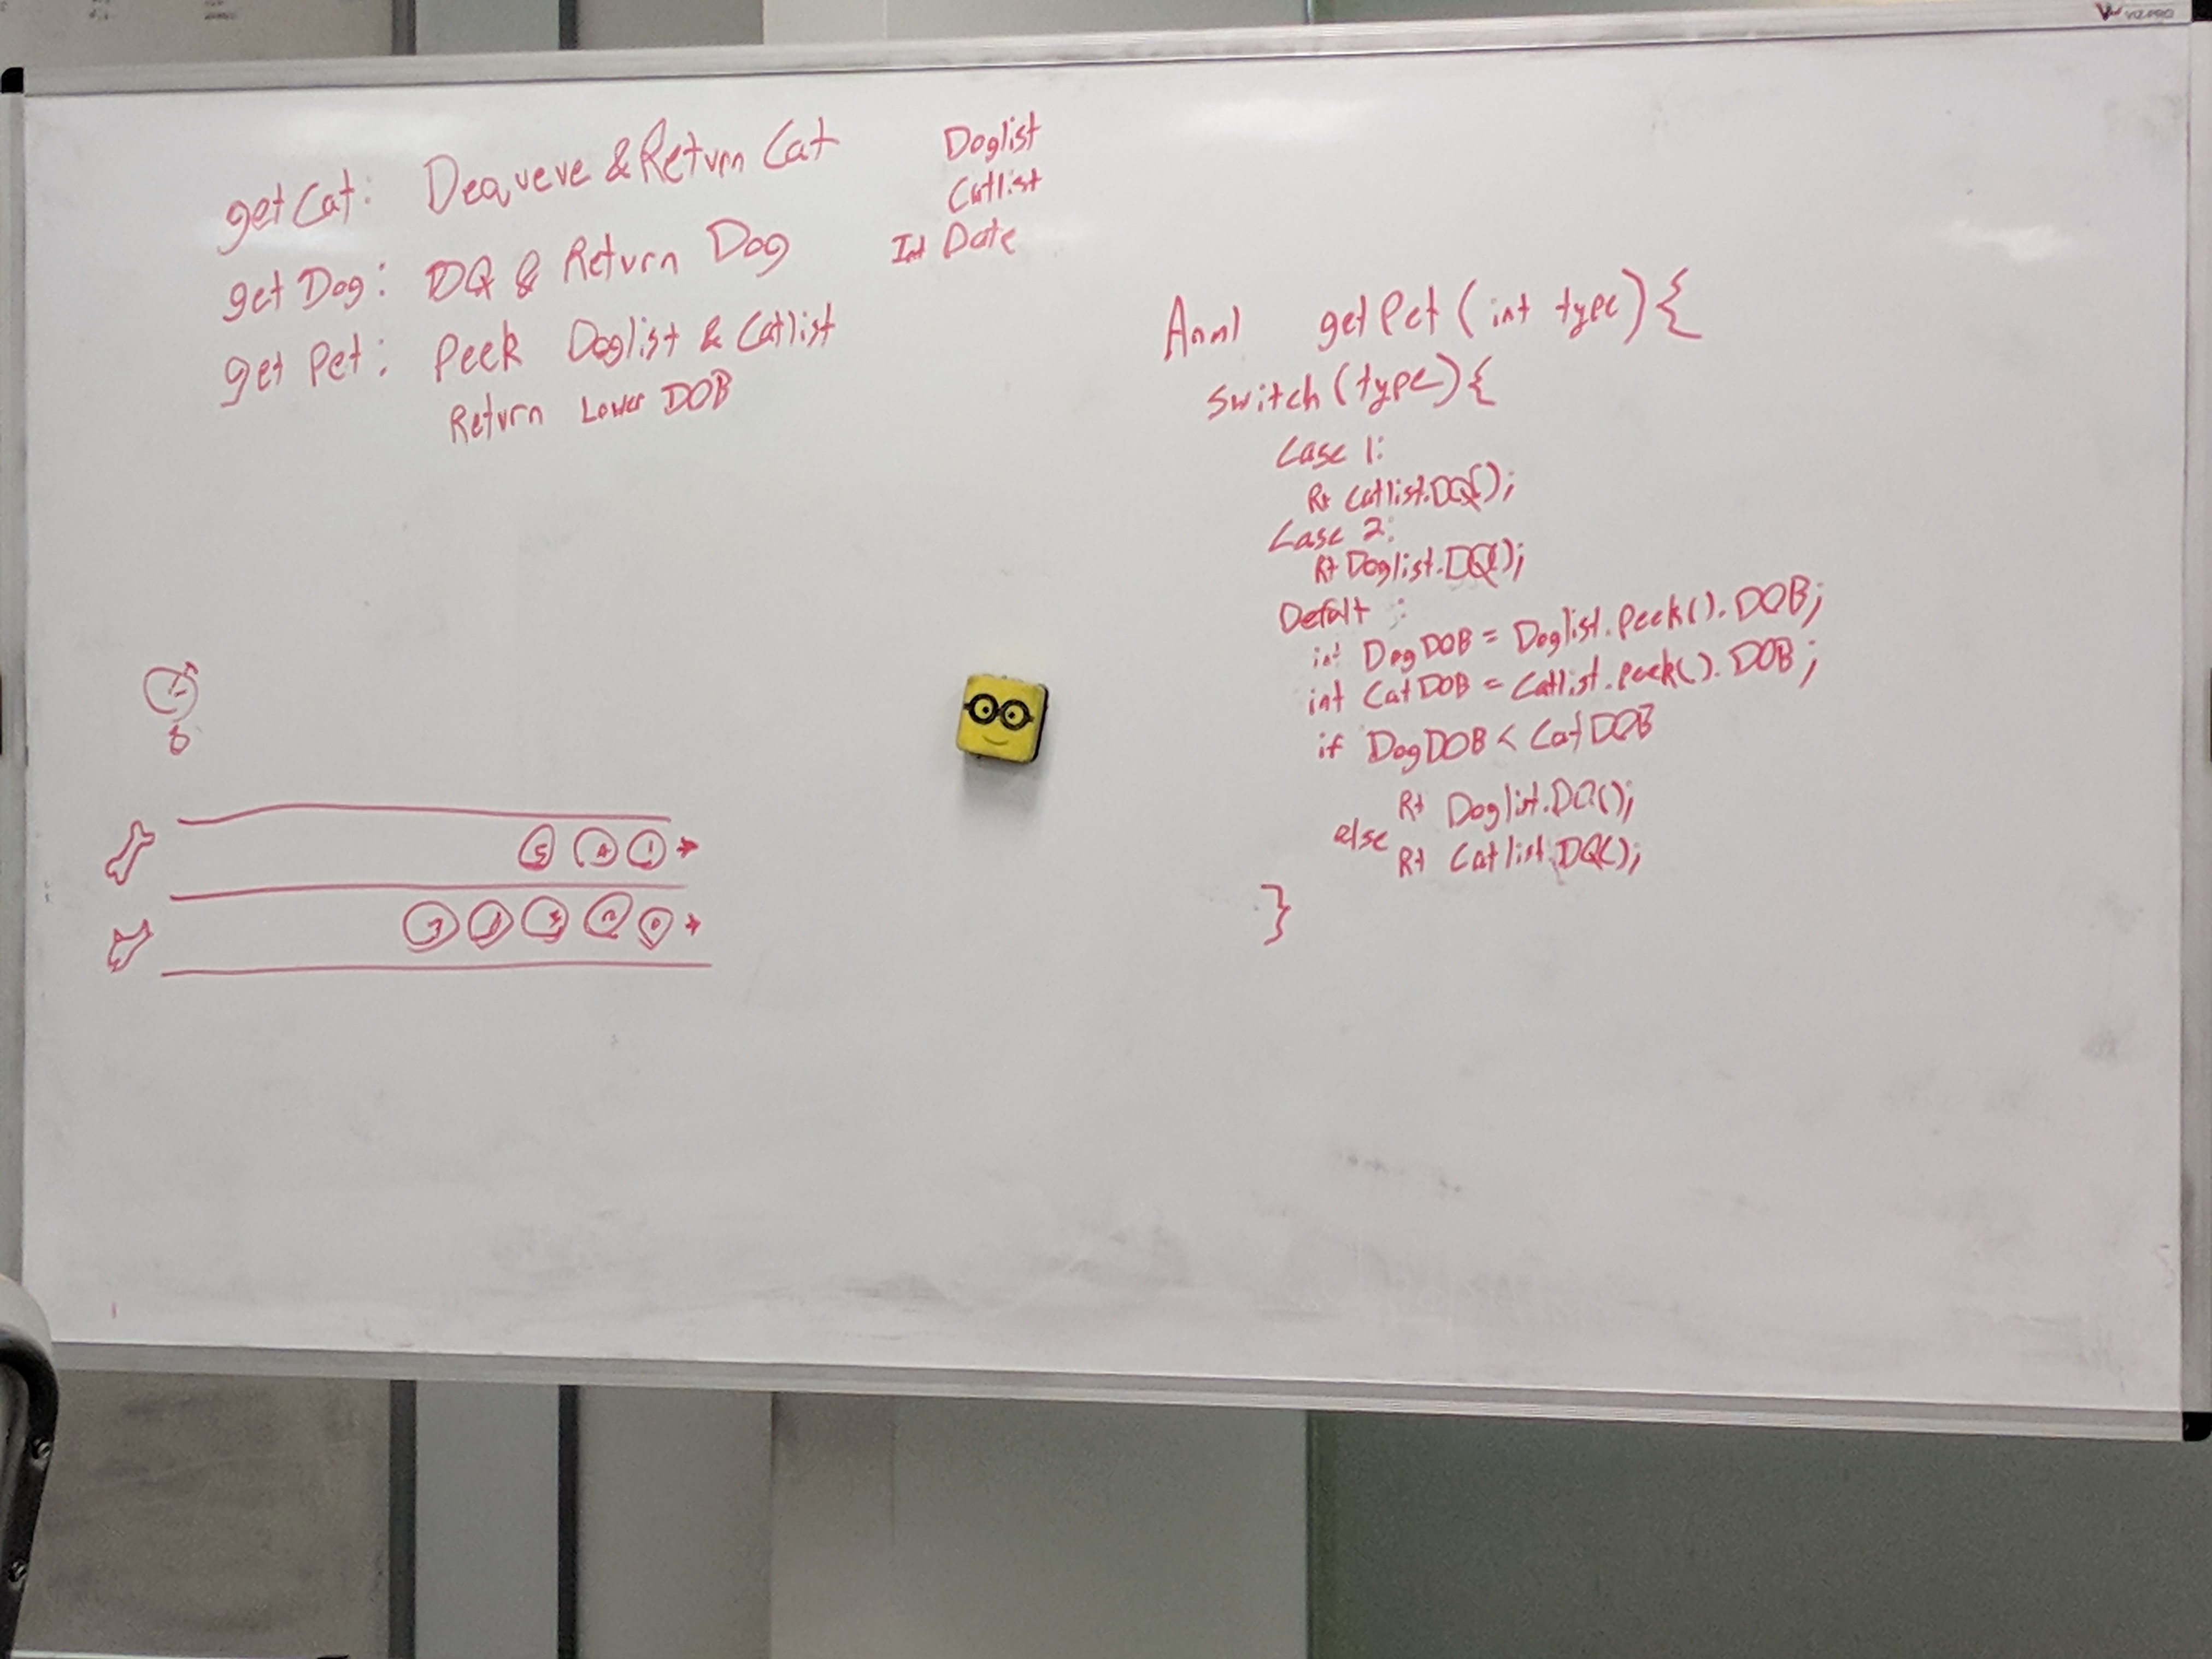 getCat: Dequeue & Return Cat
getDog: DQ & Return Dog
getPet: Peek Doglist & Catlist
Return Lower DOB
Doglist
Catlist
Int Date
Anml getPet (int type) {
Switch (type) {
Case 1:
Rt Catlist.DQ();
Case 2:
Rt Doglist.DQ();
Defalt :
int DogDOB = Doglist.Peek().DOB;
int CatDOB = Catlist.peek().DOB;
if DogDOB < CatDOB
Rt Doglist.DQ();
else
Rt Catlist.DQ();
}
8
5 4 1
2 0